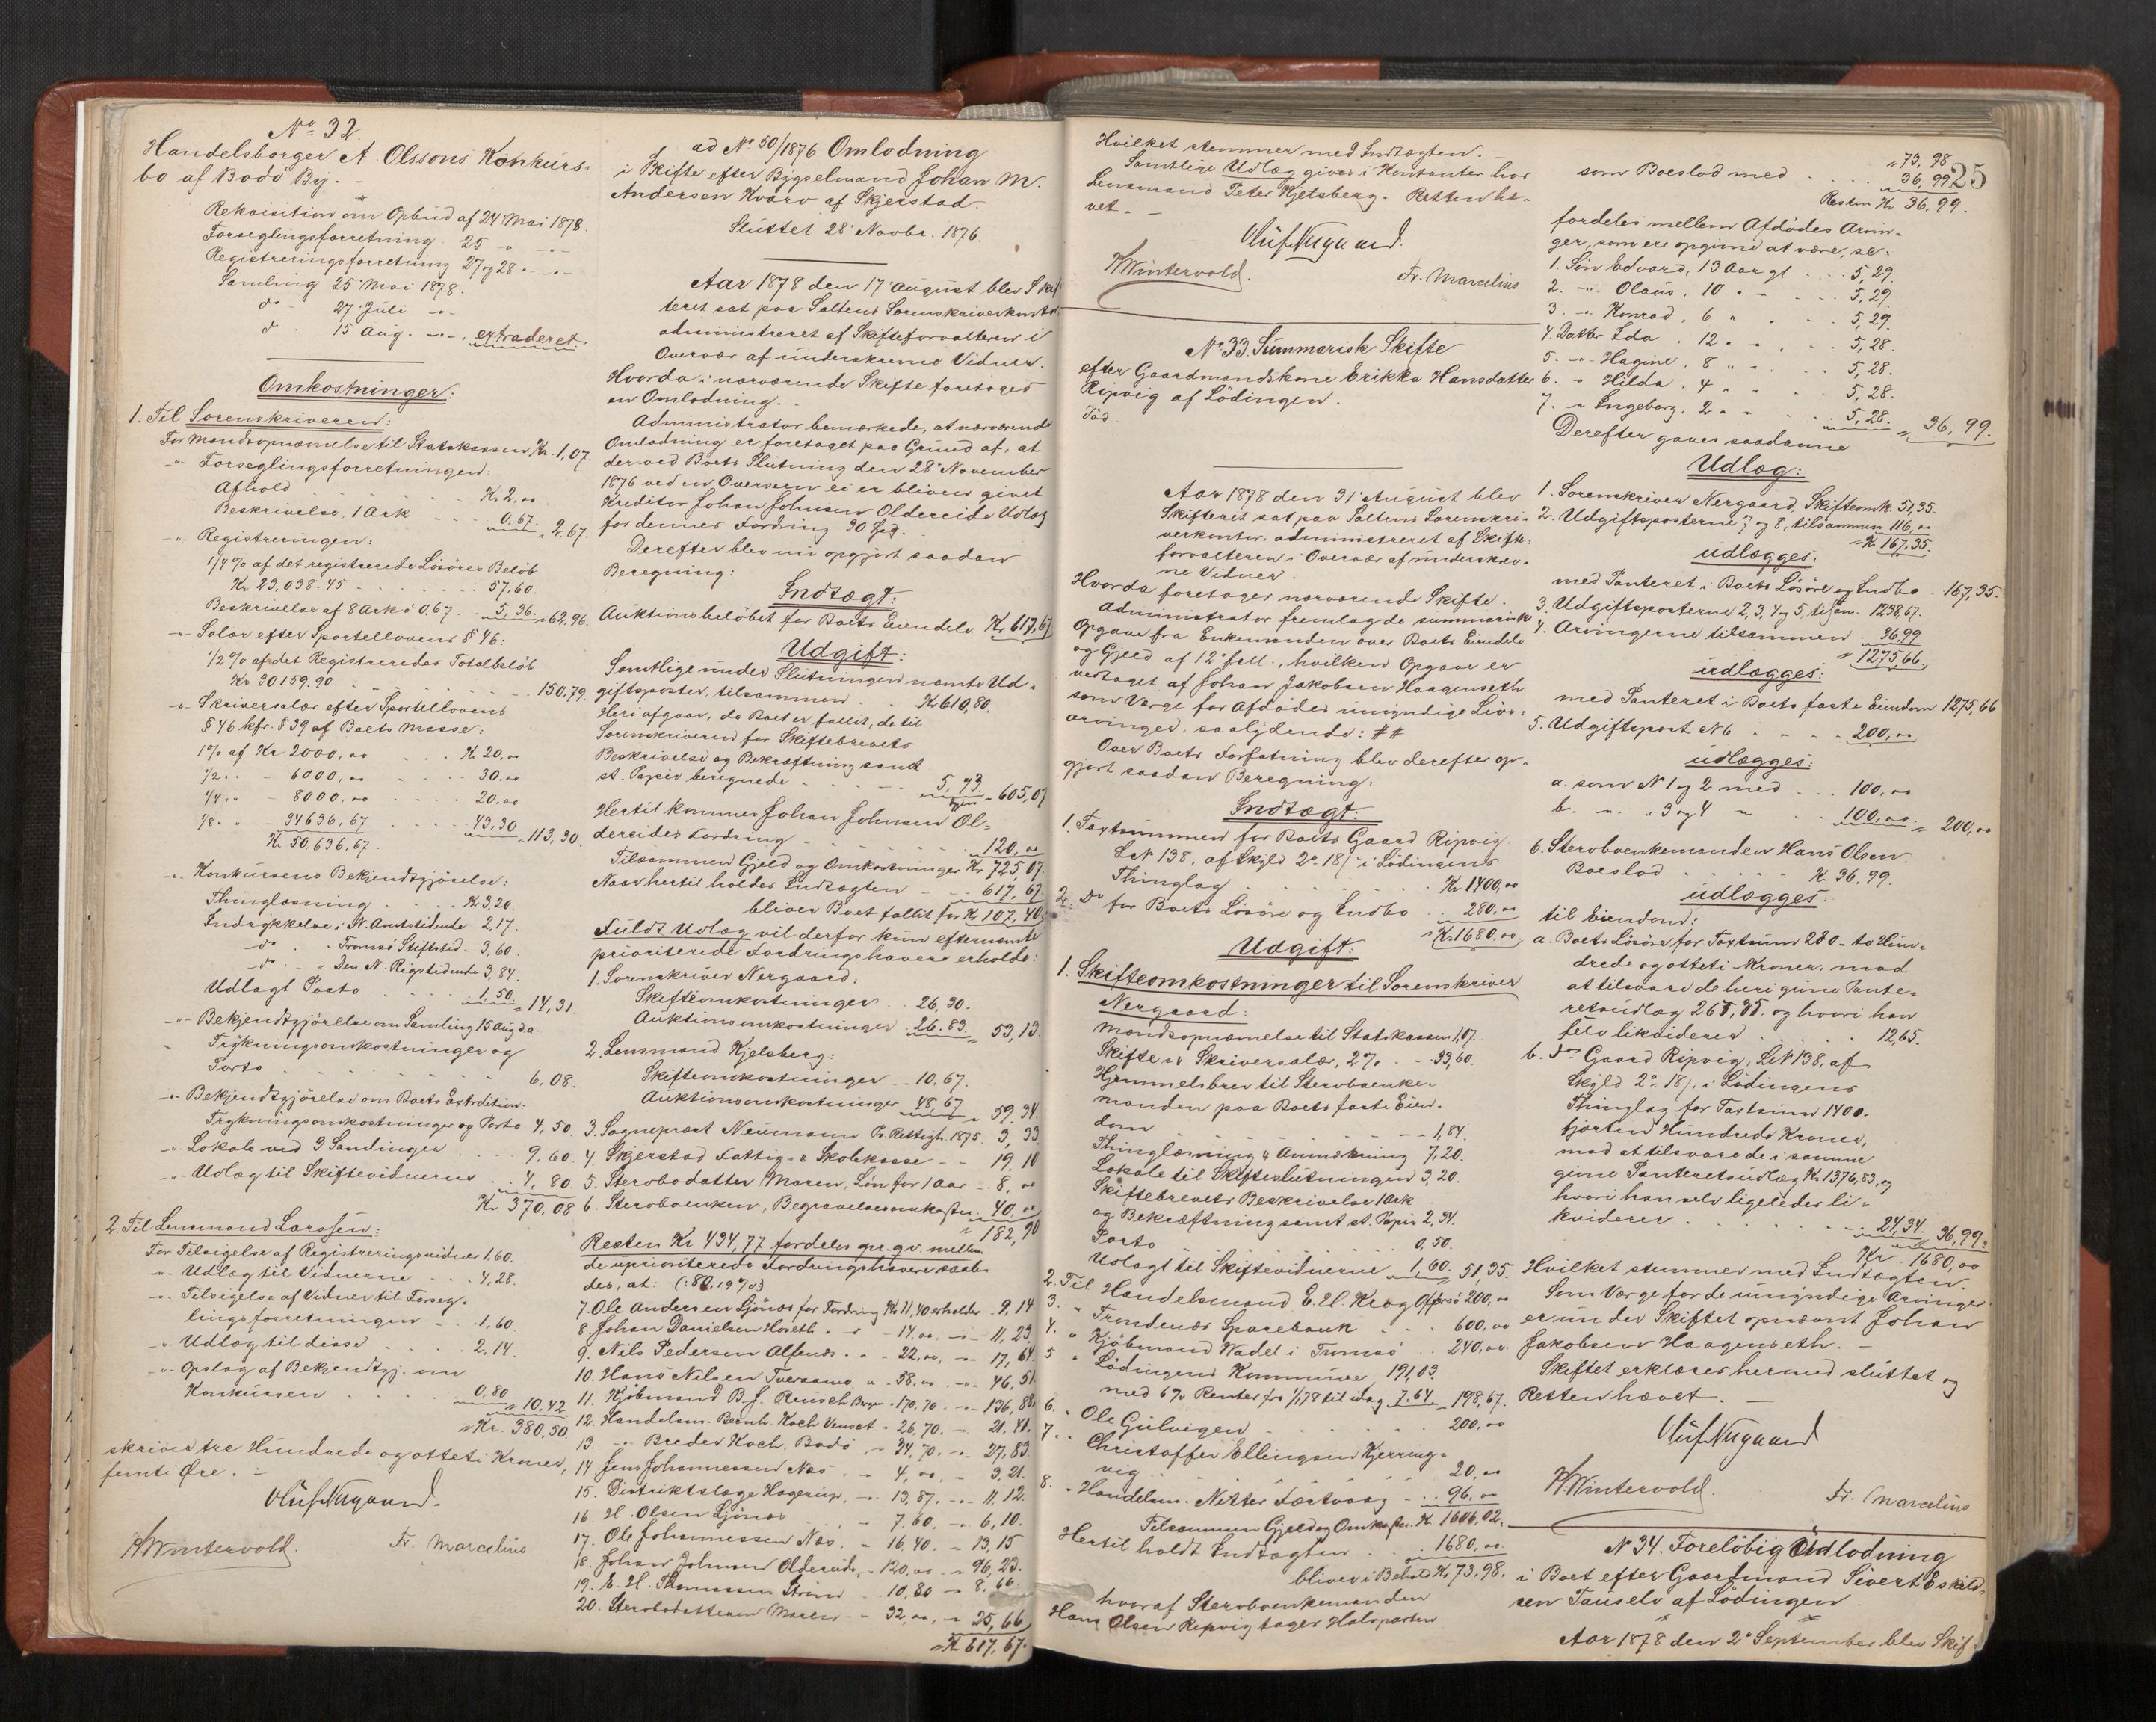 No 32.
Handelsborger A. Olssons Konkurs-
bo af Bodö By. -
Rekvisition om Opbud af 24 Mai 1878.
Forseglingsforretning 25 " -"-
Registreringsforretning 27 og 28 " -"-
Samling 25 Mai 1878.
do - 27 Juli -"-
do 15 Aug. -"-, extraderet.
Omkostninger:
1. Til Sorenskriveren:
For Mandsopnævnelse til Statskassen Kr. 1,07.
-"- Forseglingsforretningen:
Afhold . . . Kr. 2,00
Beskrivelse 1 Ark . . 0,67. " 2,67.
-"- Registreringen:
1/4 % af det registrerede Lösöres Belöb
Kr. 23,038.45 . . . 57,60.
Beskrivelse af 8 Ark à 0,67 . . 5,36. " 62,96.
-"- Salær efter Sportellovens § 46:
1/2 % af det Registreredes Totalbelöb
Kr 30159.90 . . . 150,79.
-"- Skriversalær efter Sportellovens
§ 46 kfr. § 39 af Boets Masse:
1 % af Kr 2000,00 . . . Kr. 20,00
1/2 " - 6000,00 . . . 30,00
1/4 " - 8000,00 . . . 20,00
1/8 " - 34636,67 . . . 43,30 " 113,30.
Kr. 50,636,67.
-"- Konkursens Bekjendtgjörelse:
Thinglæsning . . . Kr 3,20.
Indrykkelse i N. Amtstidende 2,17.
-do- . " Tromsö Stiftstid. 3,60.
-do- . " Den N. Rigstidende 3,84.
Udlagt Porto . . . 1,50 " 14,31.
-"- Bekjendtgjörelse om Samling 15 Aug. d.a.
Trykningsomkostninger og
Porto . . . 6,08.
-"- Bekjendtgjörelse om Boets Extradition:
Trykningsomkostninger og Porto 4,50.
-"- Lokale ved 3 Samlinger . . . 9,60.
-"- Udlæg til Skiftevidnerne . . . 4,80.
Kr. 370,08
2. Til Lensmand Larssen:
For Tilsigelse af Registreringsvidner 1,60.
-"- Udlæg til Vidnerne . . . 4,28.
-"- Tilsigelse af Vidner til Forseg-
lingsforretningen . . . 1,60
-"- Udlæg til disse . . . 2,14.
-"- Opslag af Bekjendtgj. om
Konkursen . . . 0,80 " 10,42
Kr. 380,50.
skriver tre Hundrede og otteti Kroner,
femti Öre. -
Oluf Nergaard.
H. Wintervold. Fr. Marcelius
ad No 50/1876 Omlodning
i Skifte efter Bygselmand Johan M.
Andersen Kvarv af Skjerstad.
Sluttet 28 Novbr. 1876.
Aar 1878 den 17 August blev Skif
teret sat paa Saltens Sorenskriverkontor
administreret af Skifteforvalteren i
Overvær af underskrevne Vidner.
Hvorda i nærværende Skifte foretoges
en Omlodning. -
Administrator bemærkede, at nærværende
Omlodning er foretaget paa Grund af, at
der ved Boets Slutning den 28 November
1876 ved en Overseen ei er bleven givet
Kreditor Johan Johnsen Oldereide Udlæg
for dennes Fordring 30 Spd.
Derefter blev nu opgjort saadan
Beregning:
Indtægt:
Auktionsbelöbet for Boets Eiendele Kr 617,67
Udgift:
Samtlige under Slutningen nævnte Ud-
giftsposter, tilsammen . . Kr 610,80.
Heri afgaar, da Boet er fallit, de til
Sorenskriveren for Skiftebrevets
Beskrivelse og Bekræftning samt
st. Papir beregnede . . . 5,73.
igjen " 605,07
Hertil kommer Johan Johnsen Ol-
dereides Fordring . . . 120,00
Tilsammen Gjeld og Omkostninger Kr 725,07.
Naar hertil holdes Indtægten . . . 617,67.
bliver Boet fallit for Kr. 107,40.
Fuldt Udlæg vil derfor kun efternævnte
prioriterede Fordringshavere erholde:
1. Sorenskriver Nergaard:
Skifteomkostninger . . 26,30.
Auktionsomkostninger . 26.83. " 53,13.
2. Lensmand Kjelsberg:
Skifteomkostninger . . 10,67.
Auktionsomkostninger 48,67 " 59,34.
3. Sognepræst Neumann Pr. Rettigh. 1875. 3,33.
4. Skjerstad Fattig- & Skolekasse - - 19,10
5. Sterbodatter Maren, Lön for 1 Aar . . 8,00
6. Sterboenken, Begravelsesomkostn. 40,00
" 182,90
Resten Kr 434,77 fordeles pr. q.v. mellem
de uprioriterede Fordringshavere saale-
des, at: (: 80,19 % :)
7. Ole Andersen Ljönes for Fordring Kr. 11,40 erholder . 9,14
8. Johan Danielsen Horeth - " - 14,00. -"- 11,23.
9. Nils Pedersen Alfenes . . - 22,00, -"- 17,64.
10. Hans Nilsen Tveraamo " . 58,00. -"- 46,51
11. Kjöbmand B. J. Reusch Bergen . 170,70. -"- 136,88.
12. Handelsm. Bernh. Koch Venset - 26,70. -"- 21,41.
13. -"- Breder Koch, Bodö . - 34,70. -"- 27,83.
14 Jens Johannessen Næs . - 4,00. -"- 3,21.
15. Distriktslæge Hagerup, -"- 13,87. -"- 11,12.
16. H. Olsen Ljönes . . - 7.60. -"- 6,10.
17. Ole Johannessen Næs, - 16,40. -"- 13,15
18. Johan Johnsen Oldereide, - 120,00 -"- 96,23.
19. E. H. Thomassen Ström . 10,80 -"- 8,66
20. Sterbodatteren Maren . . - 32,00, -"- 25,66
Kr 617,67.
Hvilket stemmer med Indtægten. -
Samtlige Udlæg gives i Kontanter hos
Lensmand Peter Kjelsberg. Retten hæ-
vet. -
Oluf Nergaard.
H. Wintervold. Fr. Marcelius
No 33. Summarisk Skifte
efter Gaardmandskone Erikka Hansdatter
Ripvig af Lödingen.
Död
Aar 1878 den 31 August blev
Skifteret sat paa Saltens Sorenskri-
verkontor, administreret af Skifte-
forvalteren i Overvær af underskrev-
ne Vidner.
Hvorda foretoges nærværende Skifte.
Administrator fremlagde summarisk
Opgave fra Enkemanden over Boets Eiendele
og Gjeld af 12 f.M., hvilken Opgave er
vedtaget af Johan Jakobsen Haagenseth
som Værge for Afdödes umyndige Livs-
arvinger, saalydende: ##
Over Boets Forfatning blev derefter op-
gjort saadan Beregning:
Indtægt:
1. Taxtsummen for Boets Gaard Ripvig,
LN 138, af Skyld 2 " 18 / i Lödingens
Thinglag . . . Kr 1400,00
2. Do for Boets Lösöre og Indbo . . 280,00
Kr. 1680,00
Udgift:
1. Skifteomkostninger til Sorenskriver
Nergaard:
Mandsopnævnelse til Statskassen 1,07.
Skifte- & Skriversalær, 2 % . . 33,60.
Hjemmelsbrev til Sterboenke-
manden paa Boets faste Eien-
dom . . . 1,84.
Thinglæsning & Anmærkning 7,20.
Lokale til Skifteslutningen 3,20.
Skiftebrevets Beskrivelse 1 Ark
og Bekræftning samt st. Papir 2,34.
Porto . . . 0,50.
Udlagt til Skiftevidnerne 1,60. " 51,35.
2. Til Handelsmand E. H. Krog Offersö 200,00
3. " Trondenæs Sparebank . . . 600,00
4. " Kjöbmand Wadel i Tromsö . . 240,00.
5 " Lödingens Kommune 191,03
med 6 % Renter fra 1/1 78 til idag 7.64 198,67.
6. " Ole Gulvigen . . . 200,00
7. " Christoffer Ellingsen Kjerring-
vig . . . 20,00
8. " Handelsm. Nitter Fæstvaag . . . 96,00
Tilsammen Gjeld og Omkostn. Kr. 1606,02.
Hertil holdt Indtægten . . . 1680,00.
bliver i Behold Kr 73,98.
hvoraf Sterboenkemanden
Hans Olsen Ripvig tager Halvparten
25
" 73,98
som Boeslod med . . . 36,99
Resten Kr 36,99.
fordeles mellem Afdödes Arvin-
ger, som ere opgivne at være, se:
1. Sön Edvard, 13 Aar gl . . . 5,29.
2. -"- Olaus, 10 " - . . 5,29
3. -" Konrad, 6 " " . . 5,29.
4. Datter Ida . 12 " " . . 5,28.
5. -"- Hagine, 8 " " . . 5,28.
6. " Hilda, 4 " " . 5,28.
7. " Ingeborg, 2 " " . . 5,28. " 36,99.
Derefter gaves saadanne
Udlæg:
1. Sorenskriver Nergaard, Skifteomk. 51,35.
2. Udgiftsposterne 7 og 8, tilsammen 116,00
Kr. 167,35.
udlægges:
med Panteret i Boets Lösöre og Indbo . 167,35.
3. Udgiftsposterne 2, 3, 4 og 5, tilsam. 1238,67.
4. Arvingerne tilsammen . 36,99
" 1275,66
udlægges:
med Panteret i Boets faste Eiendom 1275,66
5. Udgiftspost N 6 . . . 200,00
udlægges:
a. som N 1 og 2 med . . . 100,00
b. -"- " 3 og 4 " . . 100,00. " 200,00
6. Sterboenkemanden Hans Olsen.
Boeslod . . . Kr. 36,99.
udlægges:
til Eiendom:
a. Boets Lösöre for Taxtsum 280 - to Hun-
drede og otteti - Kroner, mod
at tilsvare de heri givne Pante-
retsudlæg 267,35. og hvori han
selv likviderer . . . 12,65.
b. do Gaard Ripvig, LN 138, af
Skyld 2 " 18 /, i Lödingens
Thinglag for Taxtsum 1400.
fjorten Hundrede Kroner,
mod at tilsvare de i samme
givne Panteretsudlæg Kr. 1375,66, og
hvori han selv ligeledes li-
kviderer . . . 24,34. " 36,99.
Kr. 1680,00
Hvilket stemmer med Indtægten.
Som Værge for de umyndige Arvinger
er under Skiftet opnævnt Johan
Jakobsen Haagenseth. -
Skiftet erklæres hermed sluttet og
Retten hævet. -
Oluf Nergaard
H. Wintervold. Fr. Marcelius
N 34. Foreløbig Udlodning
i Boet efter Gaardmand Sivert Eskild-
sen Tauselv af Lödingen.
Aar 1878 den 2 September blev Skif-